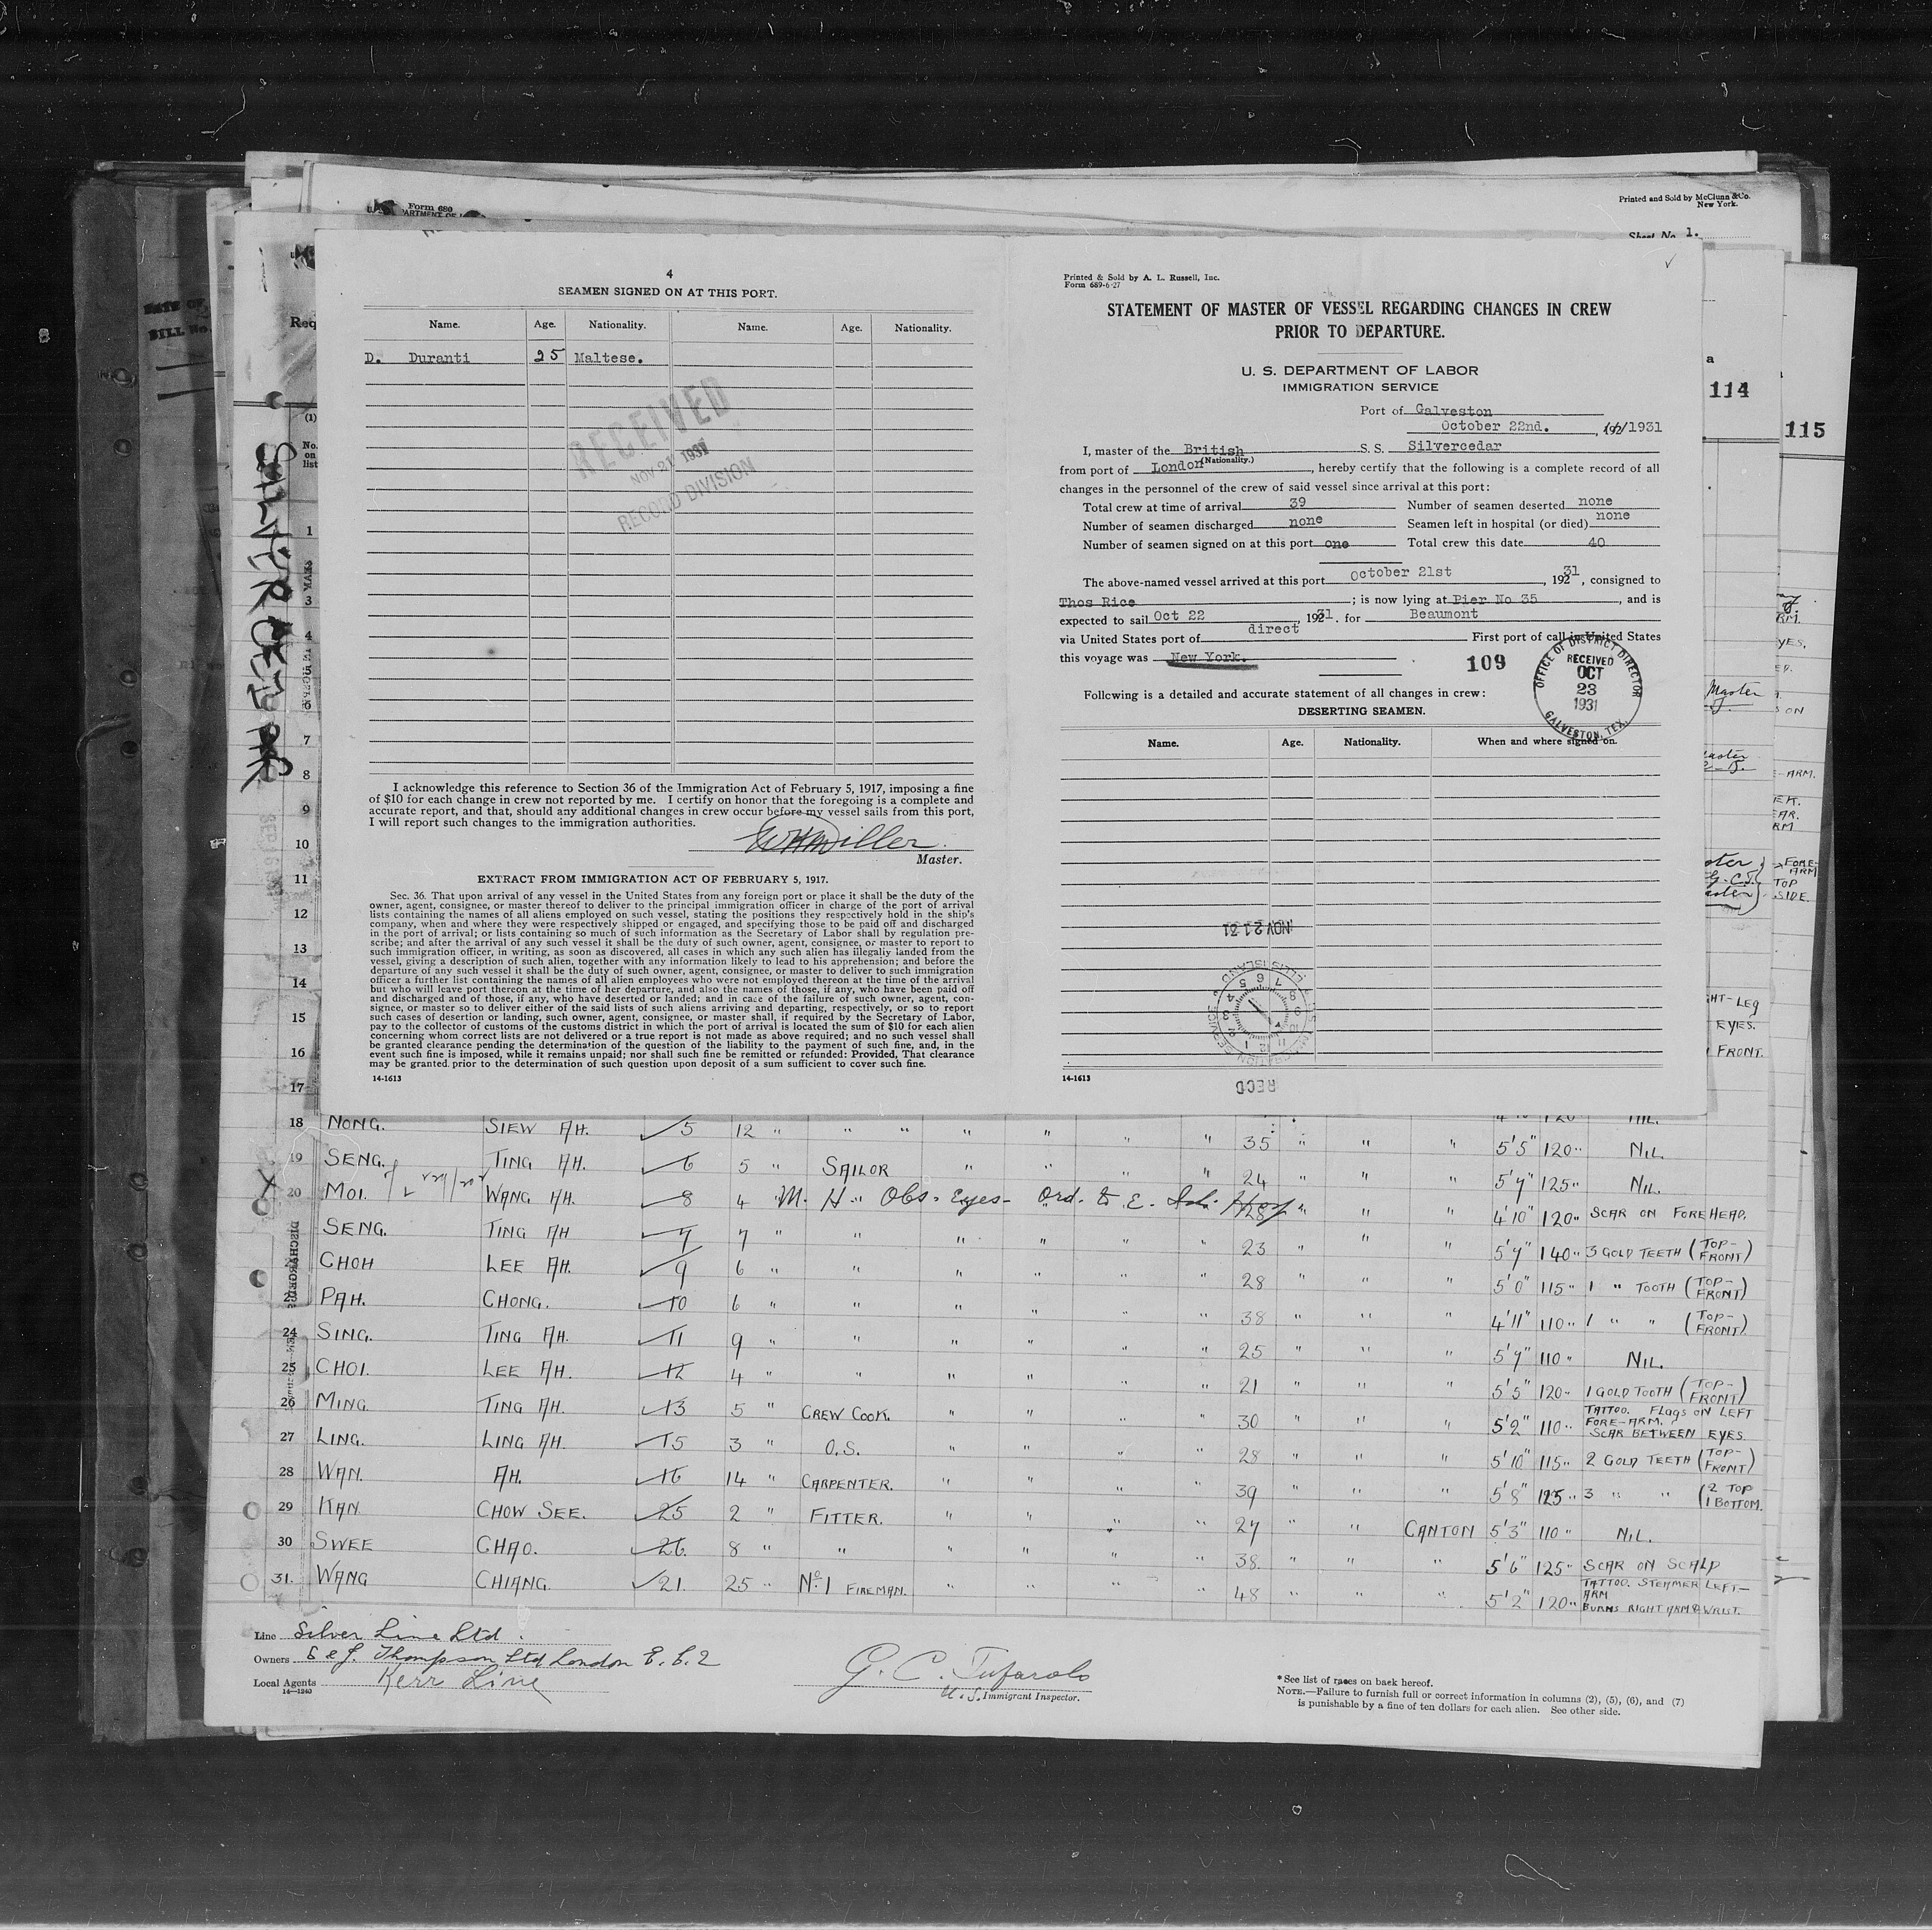 Form 680
Printed and Sold by McClunn & Co.
New York.
Sheet No. 1.
114
115
SILVERCEDAR
4
SEAMEN SIGNED ON AT THIS PORT.
Name. Age. Nationality. Name. Age. Nationality.
D. Duranti 25 Maltese.
RECEIVED
NOV 21 1931
RECORD DIVISION
I acknowledge this reference to Section 36 of the Immigration Act of February 5, 1917, imposing a fine
of $10 for each change in crew not reported by me. I certify on honor that the foregoing is a complete and
accurate report, and that, should any additional changes in crew occur before my vessel sails from this port,
I will report such changes to the immigration authorities.
Master.
EXTRACT FROM IMMIGRATION ACT OF FEBRUARY 5, 1917.
Sec. 36. That upon arrival of any vessel in the United States from any foreign port or place it shall be the duty of the
owner, agent, consignee, or master thereof to deliver to the principal immigration officer in charge of the port of arrival
lists containing the names of all aliens employed on such vessel, stating the positions they respectively hold in the ship's
company, when and where they were respectively shipped or engaged, and specifying those to be paid off and discharged
in the port of arrival; or lists containing so much of such information as the Secretary of Labor shall by regulation pre-
scribe; and after the arrival of any such vessel it shall be the duty of such owner, agent, consignee, or master to report to
such immigration officer, in writing, as soon as discovered, all cases in which any such alien has illegally landed from the
vessel, giving a description of such alien, together with any information likely to lead to his apprehension; and before the
departure of any such vessel it shall be the duty of such owner, agent, consignee, or master to deliver to such immigration
officer a further list containing the names of all alien employees who were not employed thereon at the time of the arrival
but who will leave port thereon at the time of her departure, and also the names of those, if any, who have been paid off
and discharged and of those, if any, who have deserted or landed; and in case of the failure of such owner, agent, con-
signee, or master so to deliver either of the said lists of such aliens arriving and departing, respectively, or so to report
such cases of desertion or landing, such owner, agent, consignee, or master shall, if required by the Secretary of Labor,
pay to the collector of customs of the customs district in which the port of arrival is located the sum of $10 for each alien
concerning whom correct lists are not delivered or a true report is not made as above required; and no such vessel shall
be granted clearance pending the determination of the question of the liability to the payment of such fine, and, in the
event such fine is imposed, while it remains unpaid; nor shall such fine be remitted or refunded: Provided, That clearance
may be granted prior to the determination of such question upon deposit of a sum sufficient to cover such fine.
14-1613
Printed & Sold by A. L. Russell, Inc.
Form 689-6-27
STATEMENT OF MASTER OF VESSEL REGARDING CHANGES IN CREW
PRIOR TO DEPARTURE.
U. S. DEPARTMENT OF LABOR
IMMIGRATION SERVICE
Port of Galveston
October 22nd., 1931
I, master of the British S. S. Silvercedar
(Nationality.)
from port of London, hereby certify that the following is a complete record of all
changes in the personnel of the crew of said vessel since arrival at this port:
Total crew at time of arrival 39 Number of seamen deserted none
Number of seamen discharged none Seamen left in hospital (or died) none
Number of seamen signed on at this port one Total crew this date 40
The above-named vessel arrived at this port October 21st, 1931, consigned to
Thos Rice; is now lying at Pier No 35, and is
expected to sail Oct 22, 1931. for Beaumont
via United States port of direct First port of call in United States
this voyage was New York.
109
OFFICE OF DISTRICT DIRECTOR
RECEIVED
OCT
23
1931
GALVESTON, TEX.
Following is a detailed and accurate statement of all changes in crew:
DESERTING SEAMEN.
Name. Age. Nationality. When and where signed on.
NOV 21 31
ELLIS ISLAND
RECD
14-1613
18 NONG. SIEW AH. 5 12 " " " " " " " 35 " " " 5'5" 120 " NIL.
19 SENG. TING AH. 6 5 " SAILOR " " " 24 " " " 5'7" 125 " NIL.
20 MOI. WANG AH. 8 4 " M. H. Obs. Eyes - Ord. to E. Isl. Hosp 28 " " " 4'10" 120 " SCAR ON FOREHEAD.
SENG. TING AH 7 7 " " " " " " 23 " " " 5'7" 140 " 3 GOLD TEETH (TOP-FRONT)
CHOH LEE AH. 9 6 " " " " " " 28 " " " 5'0" 115 " 1 " TOOTH (TOP-FRONT)
PAH. CHONG. 10 6 " " " " " " 38 " " " 4'11" 110 " 1 " " (TOP-FRONT)
24 SING. TING AH. 11 9 " " " " " " 25 " " " 5'7" 110 " NIL.
25 CHOI. LEE AH. 12 4 " " " " " " 21 " " " 5'5" 120 " 1 GOLD TOOTH (TOP-FRONT)
26 MING. TING AH. 13 5 " CREW COOK. " " " " 30 " " " 5'2" 110 " TATTOO. FLAGS ON LEFT FORE-ARM. SCAR BETWEEN EYES.
27 LING. LING AH. 15 3 " O.S. " " " " 28 " " " 5'10" 115 " 2 GOLD TEETH (TOP-FRONT)
28 WAN. AH. 16 14 " CARPENTER. " " " " 39 " " " 5'8" 125 " 3 " " (2 TOP 1 BOTTOM.
29 KAN. CHOW SEE. 25 2 " FITTER. " " " " 27 " " CANTON 5'3" 110 " NIL.
30 SWEE CHAO. 26 8 " " " " " " 38. " " " 5'6" 125 " SCAR ON SCALP
31. WANG CHIANG. 21. 25 " No. 1 FIREMAN. " " " " 48 " " " 5'2" 120 " TATTOO. STEAMER LEFT-ARM BURNS RIGHT ARM & WRIST.
Line Silver Line Ltd.
Owners S & J. Thompson Ltd London E. C. 2
Local Agents Kerr Line
14-1240
G. C. Tufarolo
U. S. Immigrant Inspector.
*See list of races on back hereof.
NOTE.—Failure to furnish full or correct information in columns (2), (5), (6), and (7)
is punishable by a fine of ten dollars for each alien. See other side.